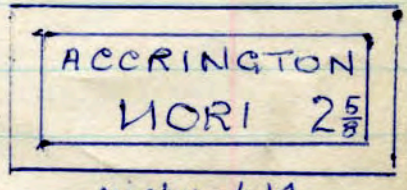 ACCRINGTON
HORI 2 5/8